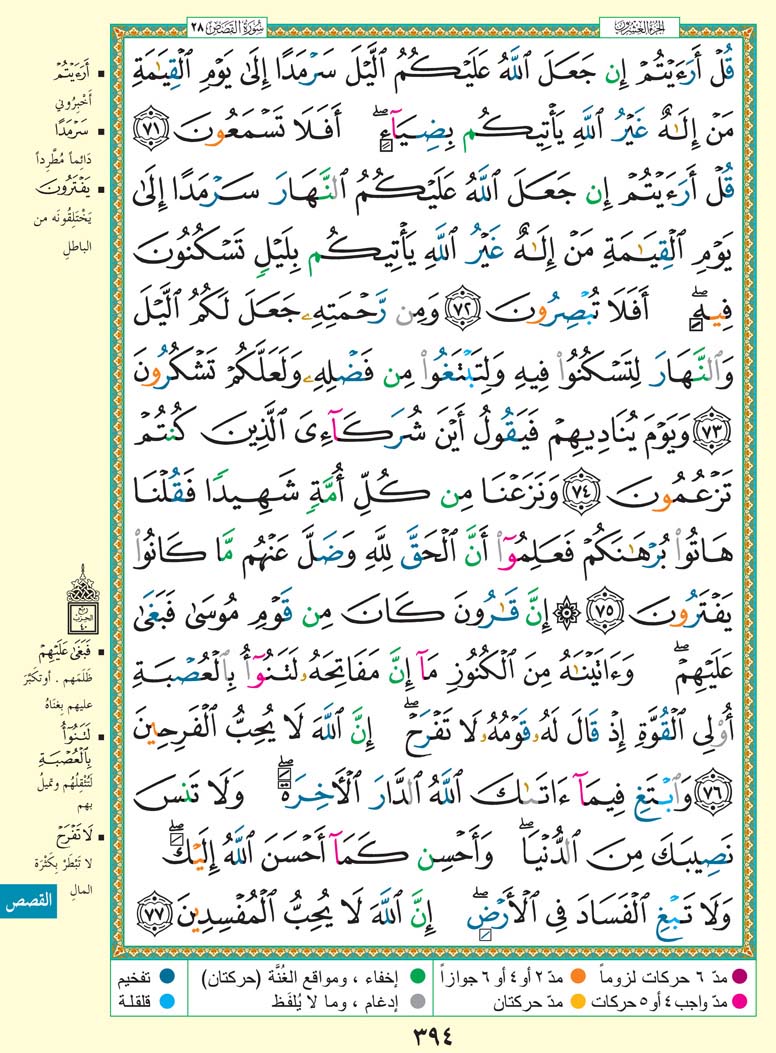 سُورَةُ القَصَصِ ٢٨
الجُزءُ العِشرُونَ
قُلْ أَرَءَيْتُمْ إِن جَعَلَ ٱللَّهُ عَلَيْكُمُ ٱلَّيْلَ سَرْمَدًا إِلَىٰ يَوْمِ ٱلْقِيَٰمَةِ
مَنْ إِلَٰهٌ غَيْرُ ٱللَّهِ يَأْتِيكُم بِضِيَآءٍ ۖ أَفَلَا تَسْمَعُونَ ٧١
قُلْ أَرَءَيْتُمْ إِن جَعَلَ ٱللَّهُ عَلَيْكُمُ ٱلنَّهَارَ سَرْمَدًا إِلَىٰ
يَوْمِ ٱلْقِيَٰمَةِ مَنْ إِلَٰهٌ غَيْرُ ٱللَّهِ يَأْتِيكُم بِلَيْلٍ تَسْكُنُونَ
فِيهِ ۖ أَفَلَا تُبْصِرُونَ ٧٢ وَمِن رَّحْمَتِهِۦ جَعَلَ لَكُمُ ٱلَّيْلَ
وَٱلنَّهَارَ لِتَسْكُنُوا۟ فِيهِ وَلِتَبْتَغُوا۟ مِن فَضْلِهِۦ وَلَعَلَّكُمْ تَشْكُرُونَ
٧٣ وَيَوْمَ يُنَادِيهِمْ فَيَقُولُ أَيْنَ شُرَكَآءِىَ ٱلَّذِينَ كُنتُمْ
تَزْعُمُونَ ٧٤ وَنَزَعْنَا مِن كُلِّ أُمَّةٍ شَهِيدًا فَقُلْنَا
هَاتُوا۟ بُرْهَٰنَكُمْ فَعَلِمُوٓا۟ أَنَّ ٱلْحَقَّ لِلَّهِ وَضَلَّ عَنْهُم مَّا كَانُوا۟
يَفْتَرُونَ ٧٥ ۞ إِنَّ قَٰرُونَ كَانَ مِن قَوْمِ مُوسَىٰ فَبَغَىٰ
عَلَيْهِمْ ۖ وَءَاتَيْنَٰهُ مِنَ ٱلْكُنُوزِ مَآ إِنَّ مَفَاتِحَهُۥ لَتَنُوٓأُ بِٱلْعُصْبَةِ
أُو۟لِى ٱلْقُوَّةِ إِذْ قَالَ لَهُۥ قَوْمُهُۥ لَا تَفْرَحْ ۖ إِنَّ ٱللَّهَ لَا يُحِبُّ ٱلْفَرِحِينَ
٧٦ وَٱبْتَغِ فِيمَآ ءَاتَىٰكَ ٱللَّهُ ٱلدَّارَ ٱلْءَاخِرَةَ ۖ وَلَا تَنسَ
نَصِيبَكَ مِنَ ٱلدُّنْيَا ۖ وَأَحْسِن كَمَآ أَحْسَنَ ٱللَّهُ إِلَيْكَ ۖ
وَلَا تَبْغِ ٱلْفَسَادَ فِى ٱلْأَرْضِ ۖ إِنَّ ٱللَّهَ لَا يُحِبُّ ٱلْمُفْسِدِينَ ٧٧
أَرَءَيْتُمْ
أَخْبِرُوني
سَرْمَدًا
دَائِماً مُطَّرِداً
يَفْتَرُونَ
يَخْتَلِقُونَه من
الباطلِ
ربع
الحزب
٤٠
فَبَغَىٰ عَلَيْهِمْ
ظَلَمَهم . أو تكبَّرَ
عليهم بِغناهُ
لَتَنُوٓأُ
بِٱلْعُصْبَةِ
لَتُثْقِلُهُم وتميلُ
بهم
لَا تَفْرَحْ
لا تَبْطَرْ بِكَثْرَة
المالِ
القصص
مدّ ٦ حركات لزوماً
مدّ ٢ أو ٤ أو ٦ جوازاً
إخفاء ، ومواقع الغُنَّة (حركتان)
تفخيم
مدّ واجب ٤ أو ٥ حركات
مدّ حركتان
إدغام ، وما لا يُلفَظ
قلقلة
٣٩٤